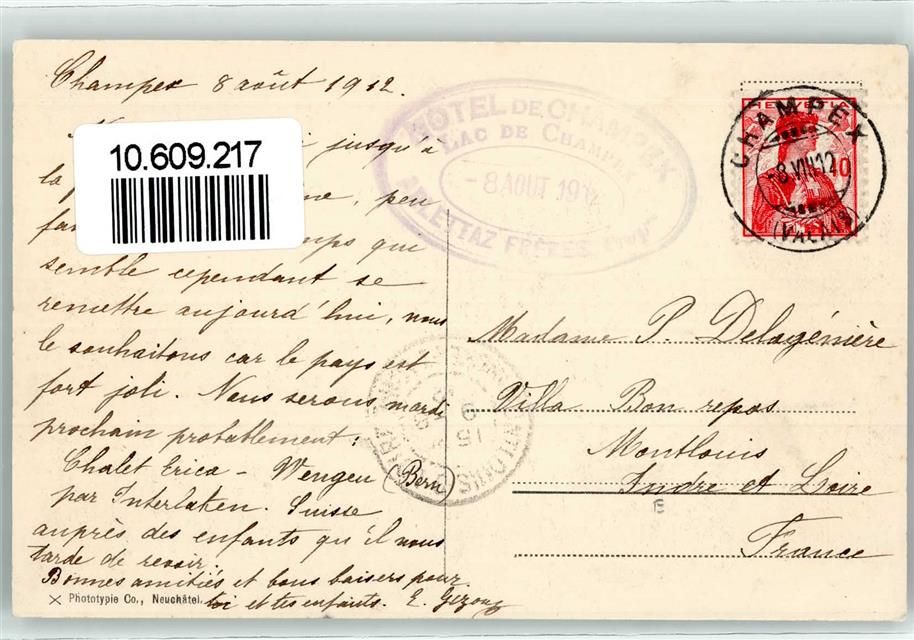 Champex 8 août 1912.
jusqu'à
10.609.217
la
peu
semble cependant se
remettre aujourd'hui, nous
le souhaitons car le pays est
fort joli. Nous serons mardi
prochain probablement:
Chalet Erica - Wengen (Bern)
par Interlaken. Suisse
auprès des enfants qu'il nous
tarde de revoir.
Bonnes amitiés et bons baisers pour
toi et tes enfants. E.
Phototypie Co., Neuchâtel.
HOTEL DE CHAMPEX
LAC DE CHAMPEX
-8 AOUT 191
FRÈRES Propr
HELVETIA
10
CHAMPEX
8.VIII.12
(VALAIS)
Madame P. Delagénière
Villa Bon repos
Montlouis
Indre et Loire
E
France